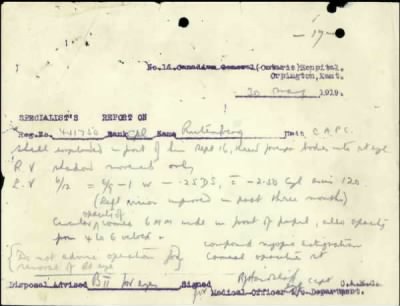 -17-
No.16 Canadian General (Ontario) Hospital.
Orpington, Kent.
30 May 1919.
SPECIALIST'S REPORT ON
Reg.No. Rank Cpl Name Rutenberg Unit C.A.P.C.
Shell exploded in front of him Sept 16, threw foreign bodies into rt eye
R.V shadow movement only
L.V 6/12 = 6/9-1 w - .25 DS, = -2.50 Cyl axis 120
(Left vision improved in past three months)
opacity of
Cornea 6 mm wide in front of pupil, also opacity
from 4 to 6 o'clock. compound myopic astigmatism
Do not advise operation for Corneal opacities rt
removal of rt eye
Disposal Advised BII for eyes Signed Capt C.A.M.C.
for Medical Officer i/c Department.